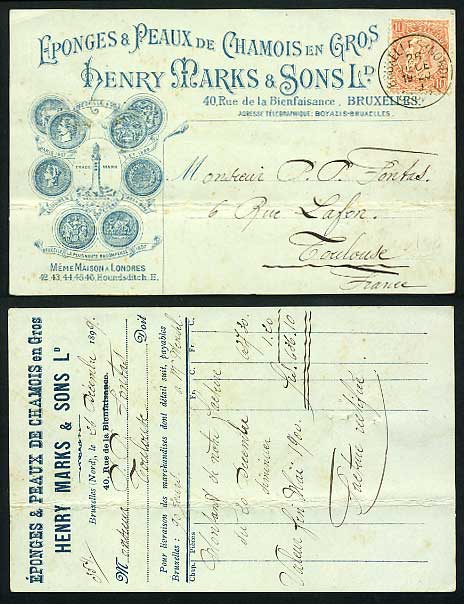 EPONGES & PEAUX DE CHAMOIS EN GROS
HENRY MARKS & SONS LD
40, Rue de la Bienfaisance, BRUXELLES.
ADRESSE TÉLÉGRAPHIQUE: BOYAZIS-BRUXELLES.
TRADE MARK
MÊME MAISON À LONDRES
42, 43, 44, 45, 46, Houndsditch, E.
10
Monsieur P. P. Fontas.
6 Rue Lafon.
Toulouse
France
ÉPONGES & PEAUX DE CHAMOIS en Gros
HENRY MARKS & SONS LD
Bruxelles (Nord), le 26 Décembre 1899.
40, Rue de la Bienfaisance.
Monsieur P. P. Fontas
Toulouse
Doit
Pour livraison des marchandises dont détail suit, payables
Bruxelles:
Chap. Pièces Fr. C. Fr. C.
Montant de notre facture
du 20 Décembre
1.20
Valeur fin Mai 1900.
Facture rectifiée